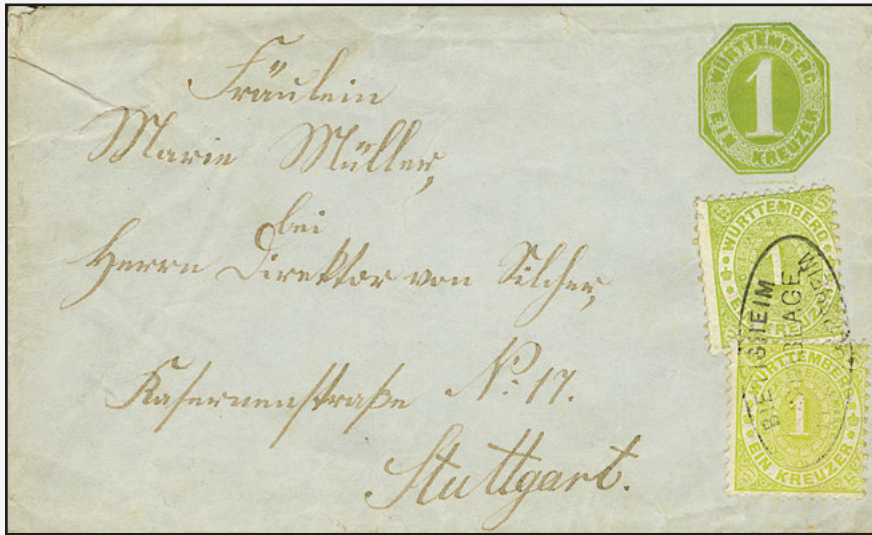 WÜRTTEMBERG
1
EIN KREUZER
Fräulein
Marie Müller,
bei
Herrn Direktor von Silcher,
Kasernenstraße No: 17.
Stuttgart.
WÜRTTEMBERG
1
EIN KREUZER
WÜRTTEMBERG
1
EIN KREUZER